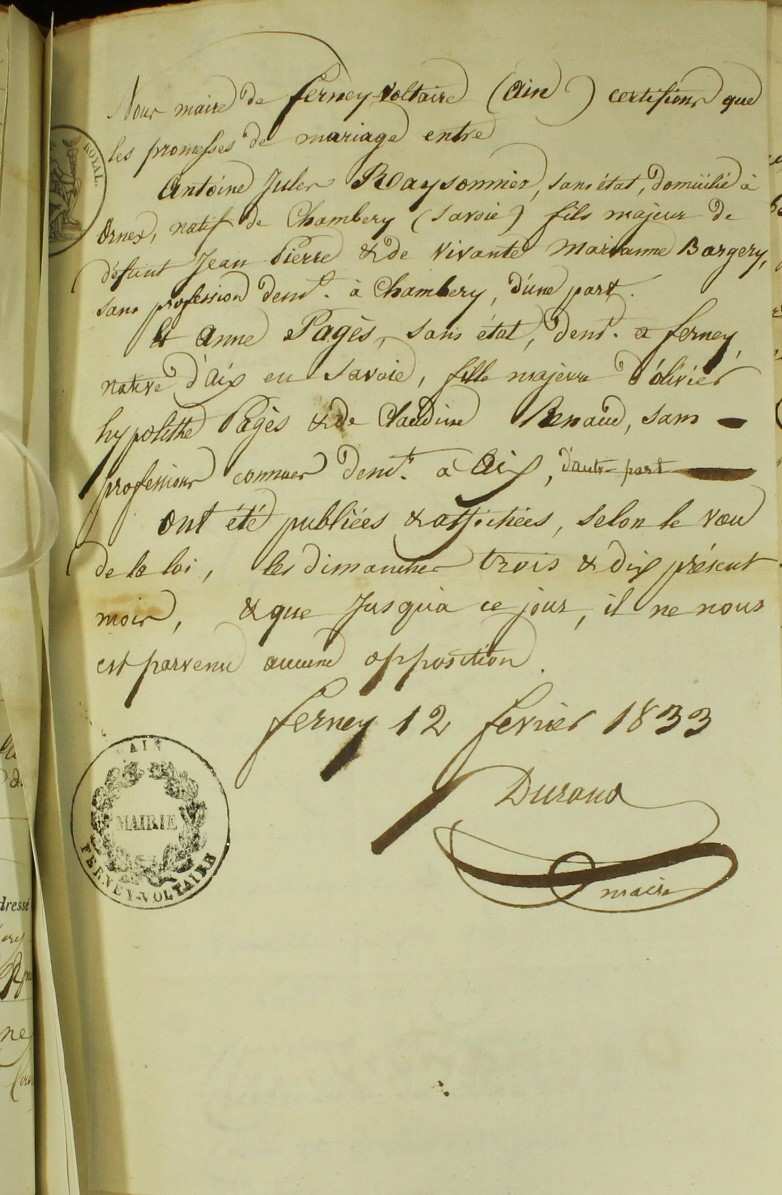 ROYAL.
Nous maire de ferney-Voltaire (Ain) certifions que
les promesses de mariage entre
Antoine Jules Raysonnier, sans état, domicilié à
Ornex, natif de Chambery (Savoie) fils majeur de
défunt Jean Pierre & de vivante Marianne Bargery,
sans profession demt. à Chambery, d'une part.
Et Anne Pagès, sans état, demt. a ferney,
native d'Aix en Savoie, fille majeure d'olivier
hypolithe Pagès & de Claudine Renaud, sans
professions connues demt. à Aix, d'autre part
ont été publiées & affichées, selon le vœu
de la loi, les dimanches trois & dix présent
mois, & que Jusqu'à ce jour, il ne nous
est parvenu aucune opposition.
ferney 12 fevrier 1833
Durand
maire
AIN
MAIRIE
FERNEY-VOLTAIRE